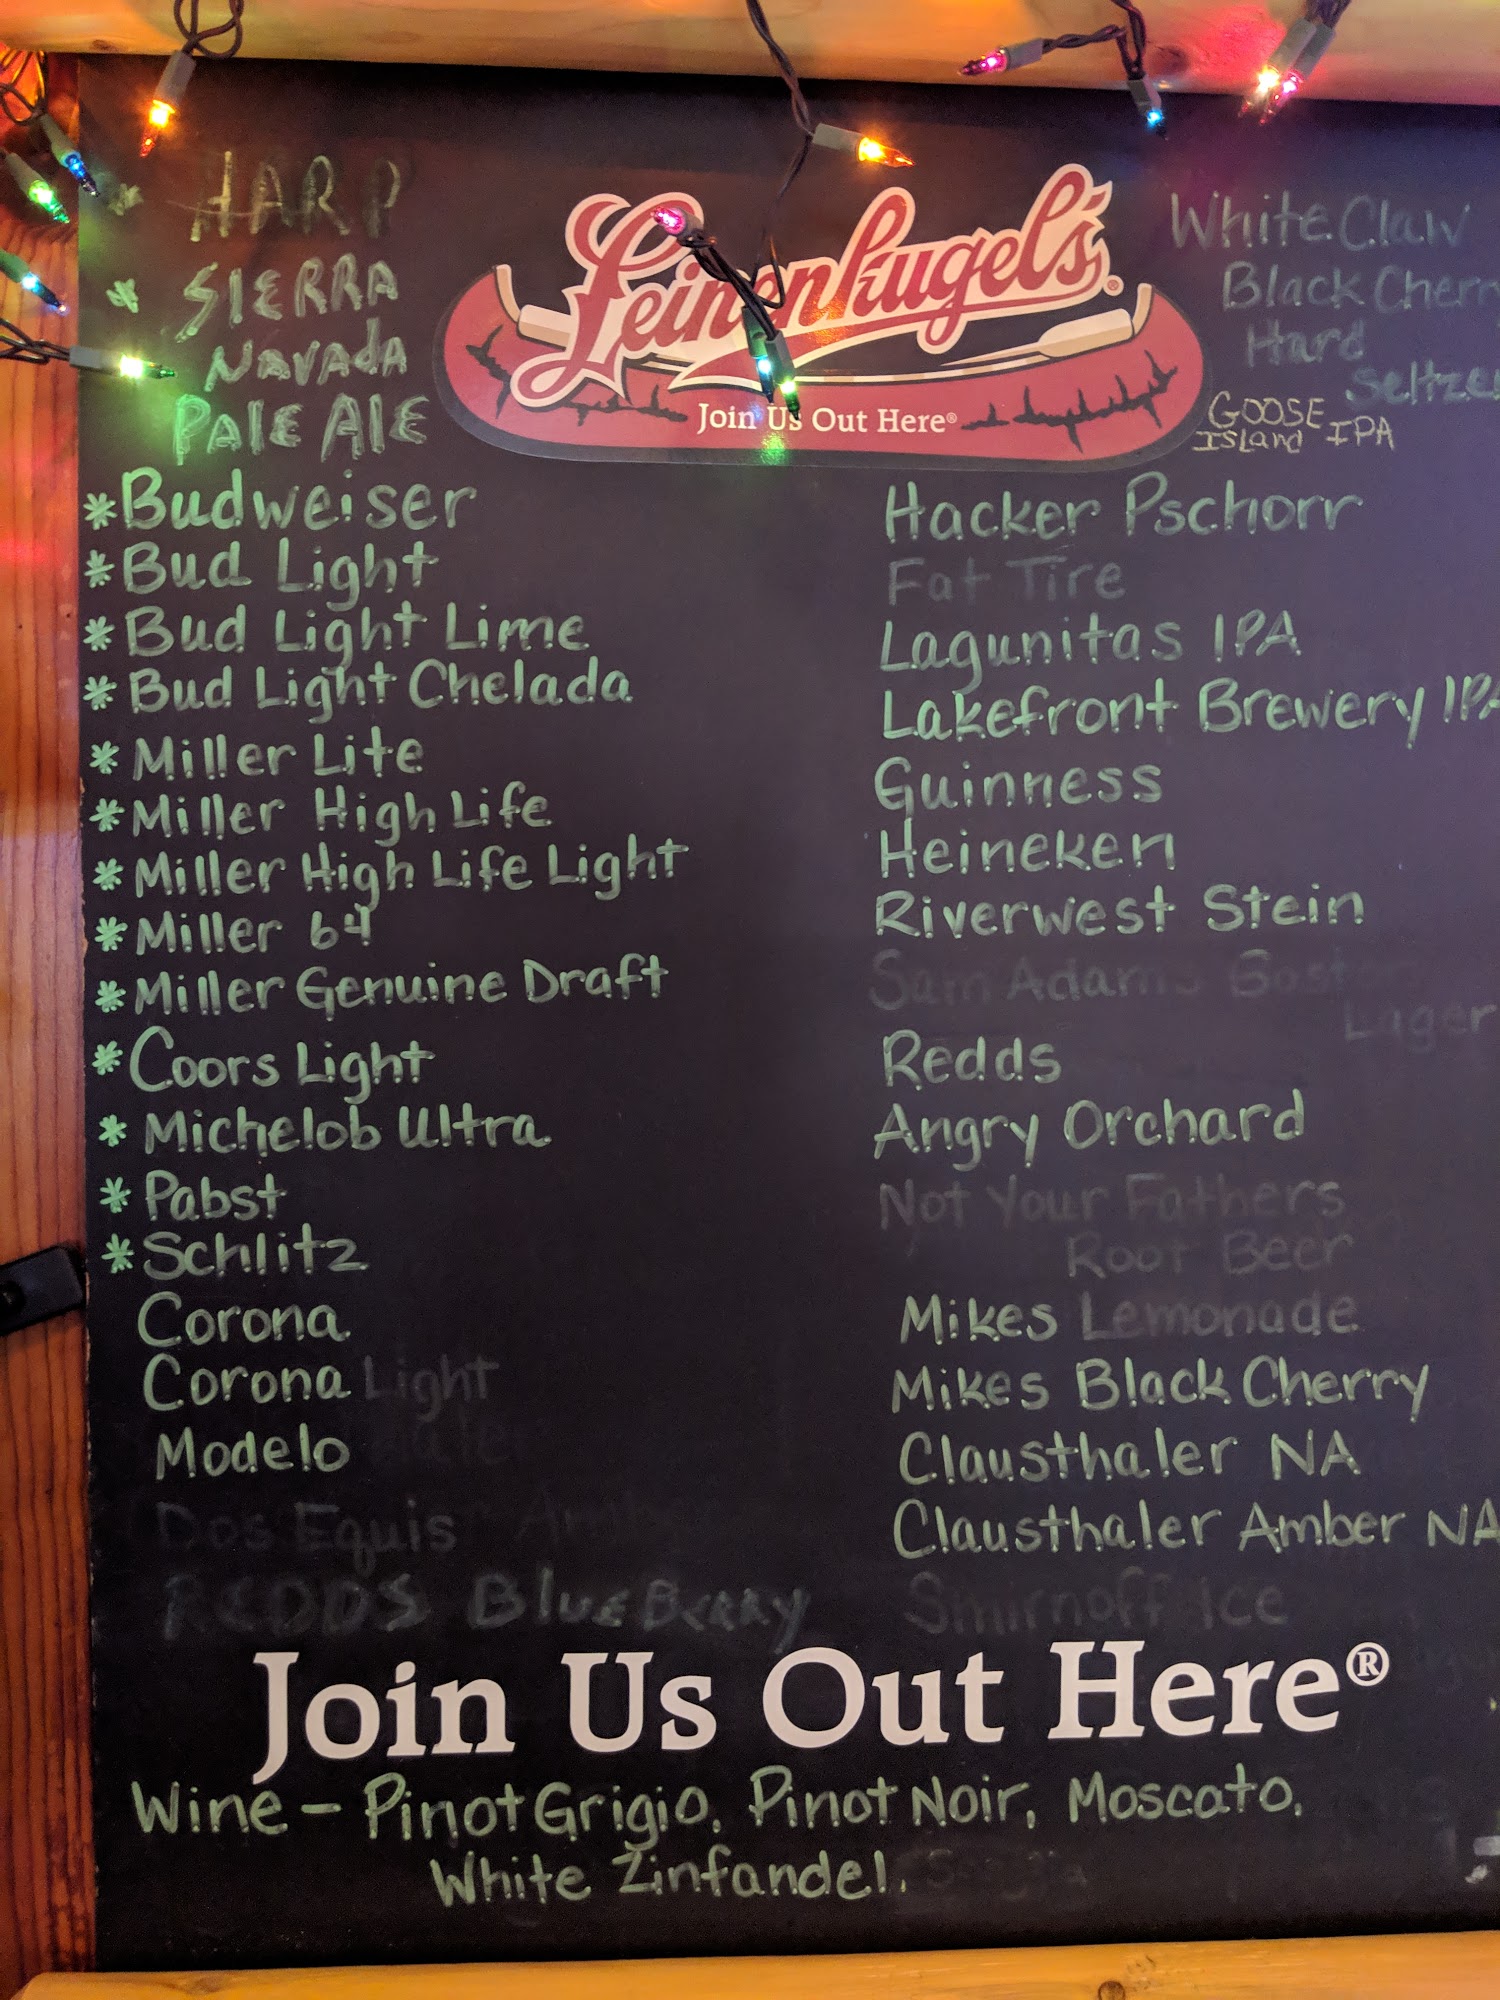 * HARP
* SIERRA
NAVADA
PALE ALE
Leinenkugel's®
Join Us Out Here®
White Claw
Black Cherr
Hard
Seltze
GOOSE
ISLAND IPA
* Budweiser
* Bud Light
* Bud Light Lime
* Bud Light Chelada
* Miller Lite
* Miller High Life
* Miller High Life Light
* Miller 64
* Miller Genuine Draft
* Coors Light
* Michelob Ultra
* Pabst
* Schlitz
Corona
Corona Light
Modelo
Dos Equis Amber
REDDS BLUEBERRY
Hacker Pschorr
Fat Tire
Lagunitas IPA
Lakefront Brewery IPA
Guinness
Heineken
Riverwest Stein
Sam Adams Boston
Lager
Redds
Angry Orchard
Not Your Fathers
Root Beer
Mikes Lemonade
Mikes Black Cherry
Clausthaler NA
Clausthaler Amber NA
Smirnoff Ice
Join Us Out Here®
Wine - Pinot Grigio, Pinot Noir, Moscato,
White Zinfandel.